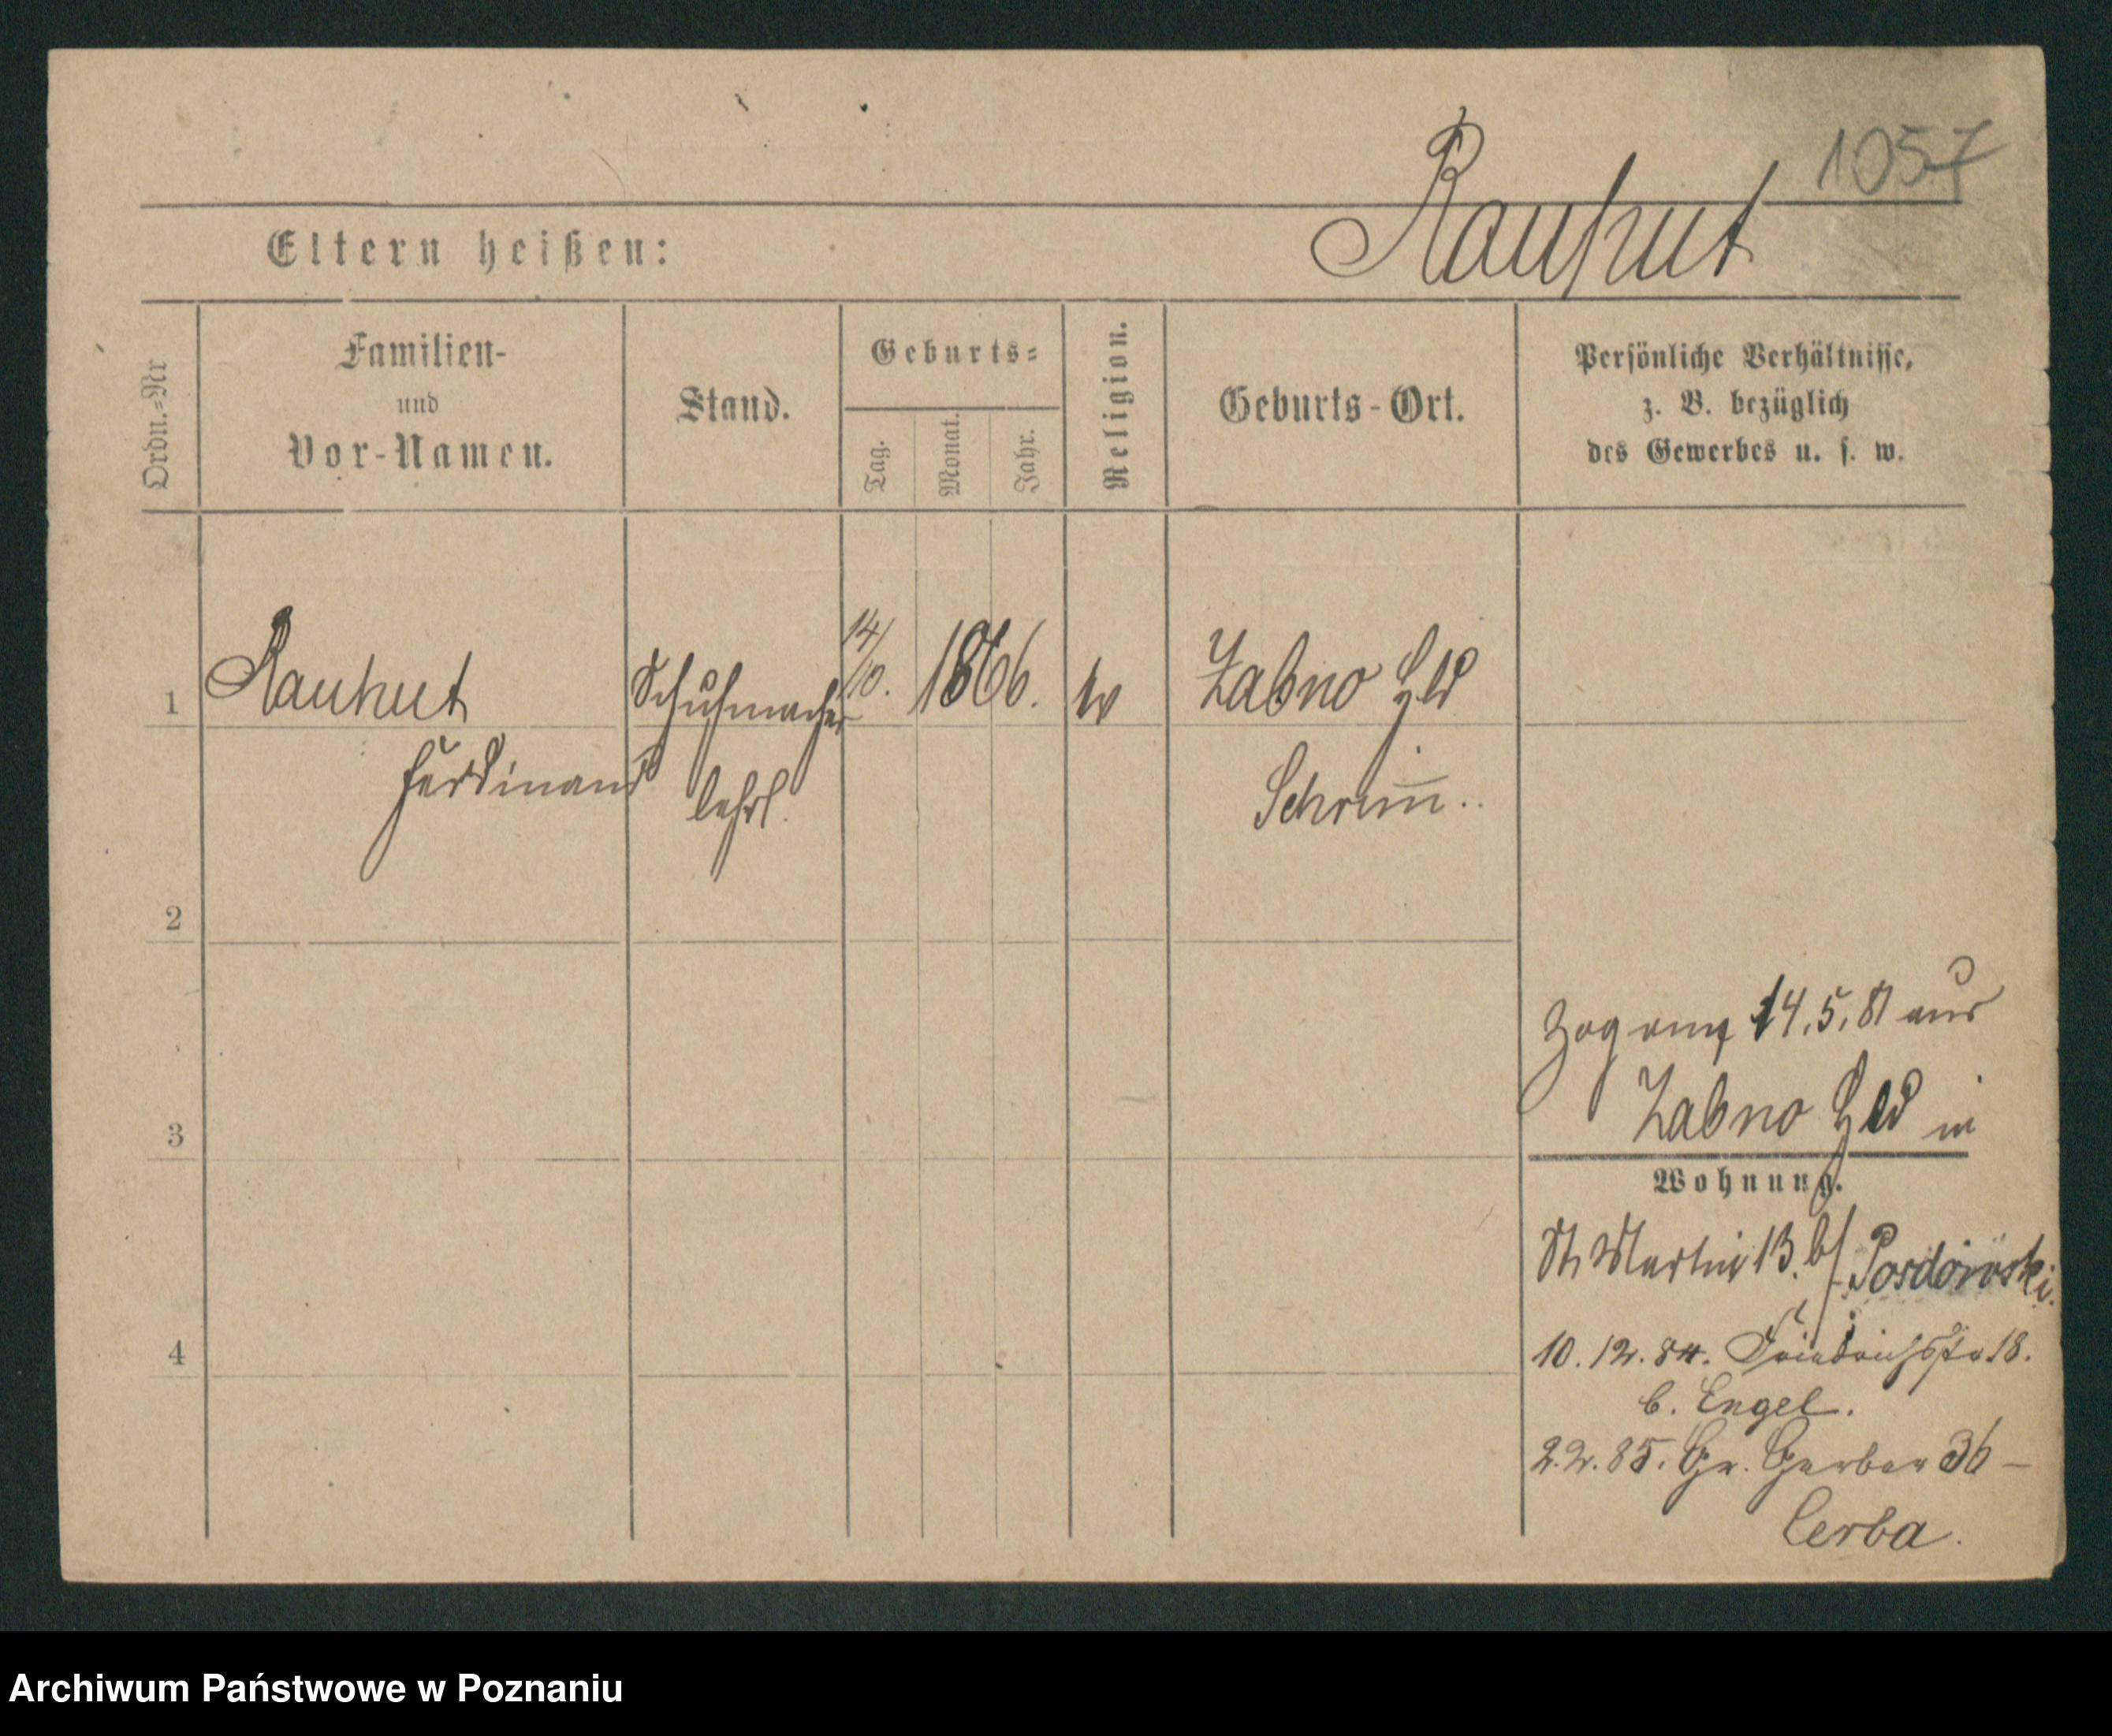 1057
Rauhut
Eltern heißen:
Ordn.=Nr
Familien-
und
Vor-Namen.
Stand.
Geburts=
Tag.
Monat.
Jahr.
Religion.
Geburts-Ort.
Persönliche Verhältnisse,
z. B. bezüglich
des Gewerbes u. s. w.
1
Rauhut
Ferdinand
Schuhmacher
lehrl.
14/10. 1866.
Zabno Hld
Schrim̅..
2
3
4
14.5.81 aus
Zabno Hld in
Wohnung.
St Martin 13. b/
10.12.84. Friedrichstr 18.
b. Engel.
2.2.85. Gr. Gerber 36 –
Cerba.
Archiwum Państwowe w Poznaniu